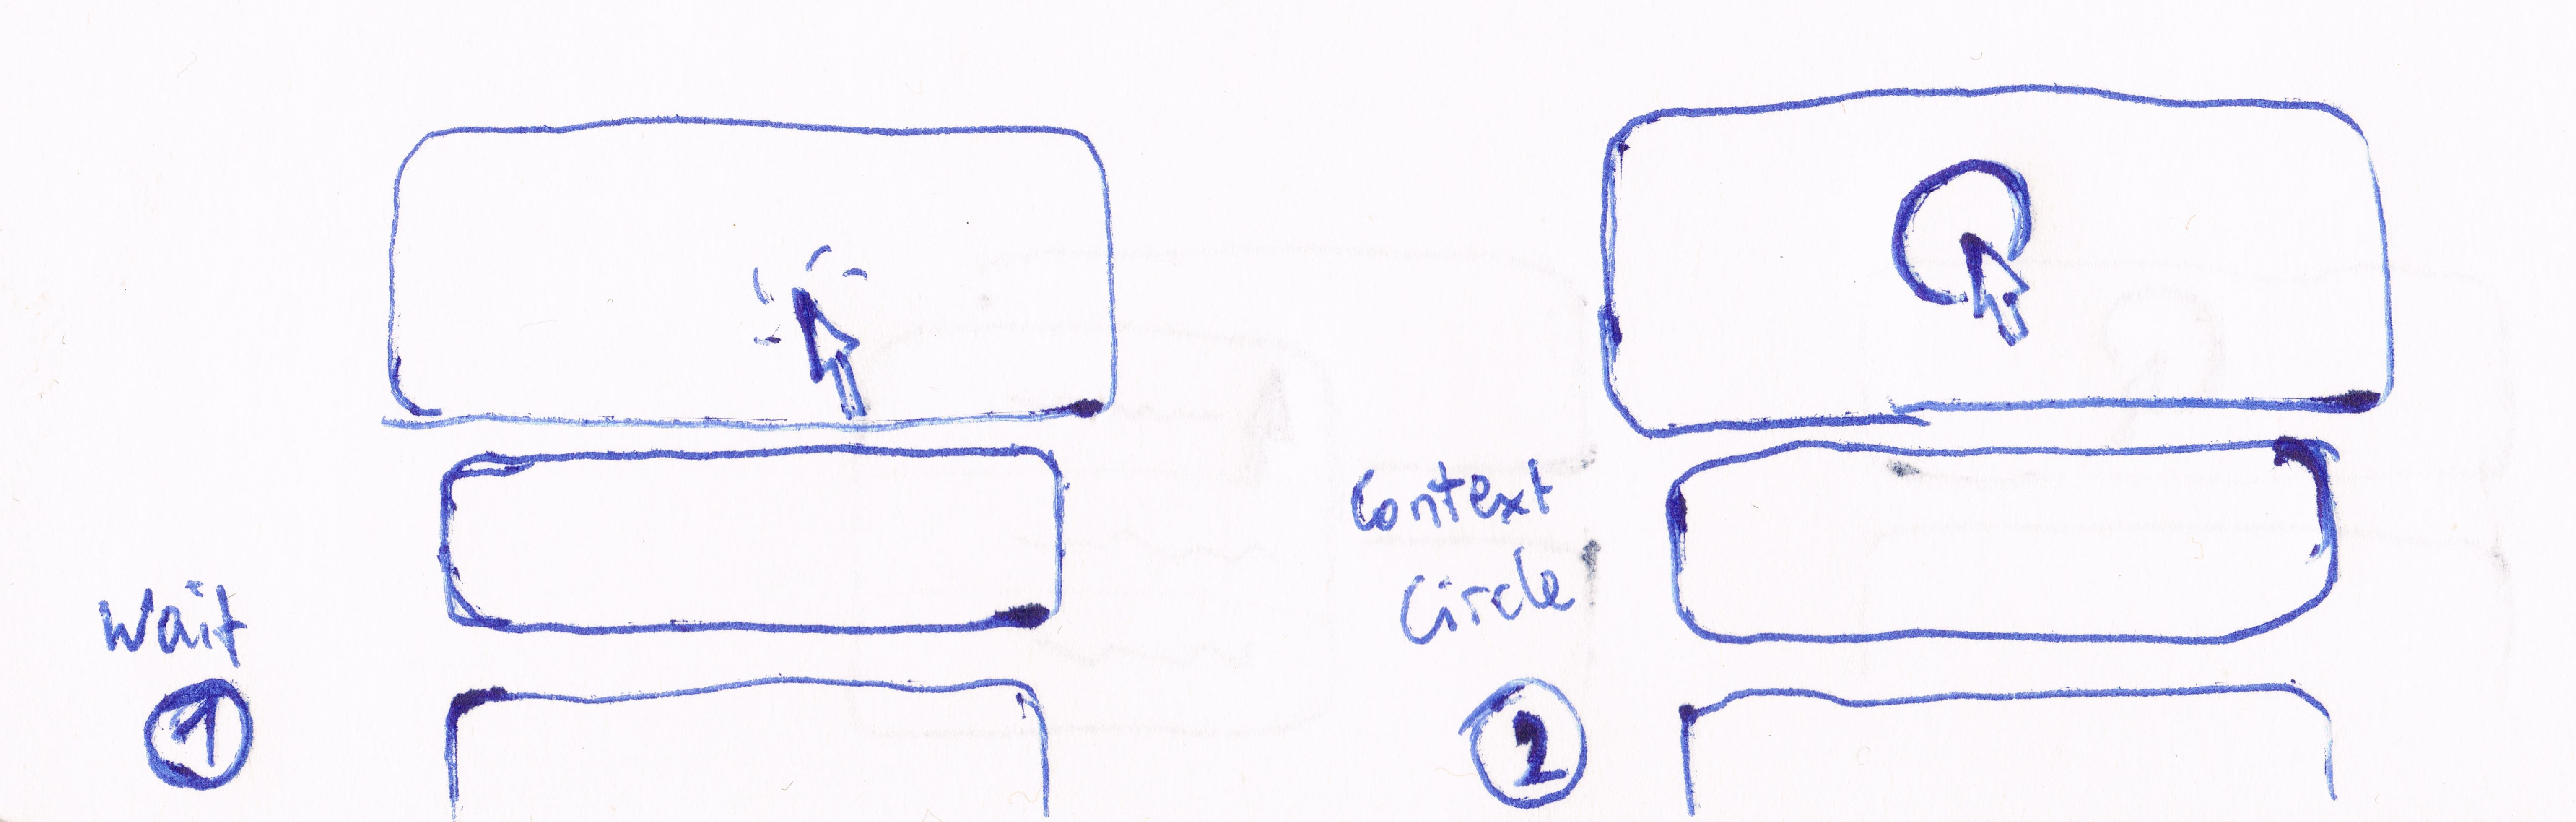 Wait
1
Context
Circle
2